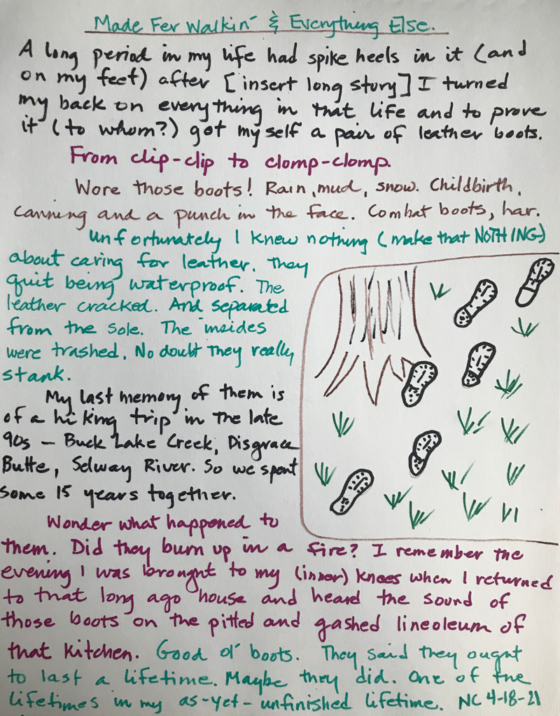 Made Fer Walkin' & Everything Else.
A long period in my life had spike heels in it (and
on my feet) after [insert long story] I turned
my back on everything in that life and to prove
it (to whom?) got myself a pair of leather boots.
From clip-clip to clomp-clomp.
Wore those boots! Rain, mud, snow. Childbirth,
canning and a punch in the face. Combat boots, har.
Unfortunately I knew nothing (make that NOTHING)
about caring for leather. They
quit being waterproof. The
leather cracked. And separated
from the sole. The insides
were trashed. No doubt they really
stank.
My last memory of them is
of a hiking trip in the late
90s — Buck Lake Creek, Disgrace
Butte, Selway River. So we spent
some 15 years together.
Wonder what happened to
them. Did they burn up in a fire? I remember the
evening I was brought to my (inner) knees when I returned
to that long ago house and heard the sound of
those boots on the pitted and gashed lineoleum of
that kitchen. Good ol' boots. They said they ought
to last a lifetime. Maybe they did. One of the
lifetimes in my as-yet-unfinished lifetime. NC 4-18-21